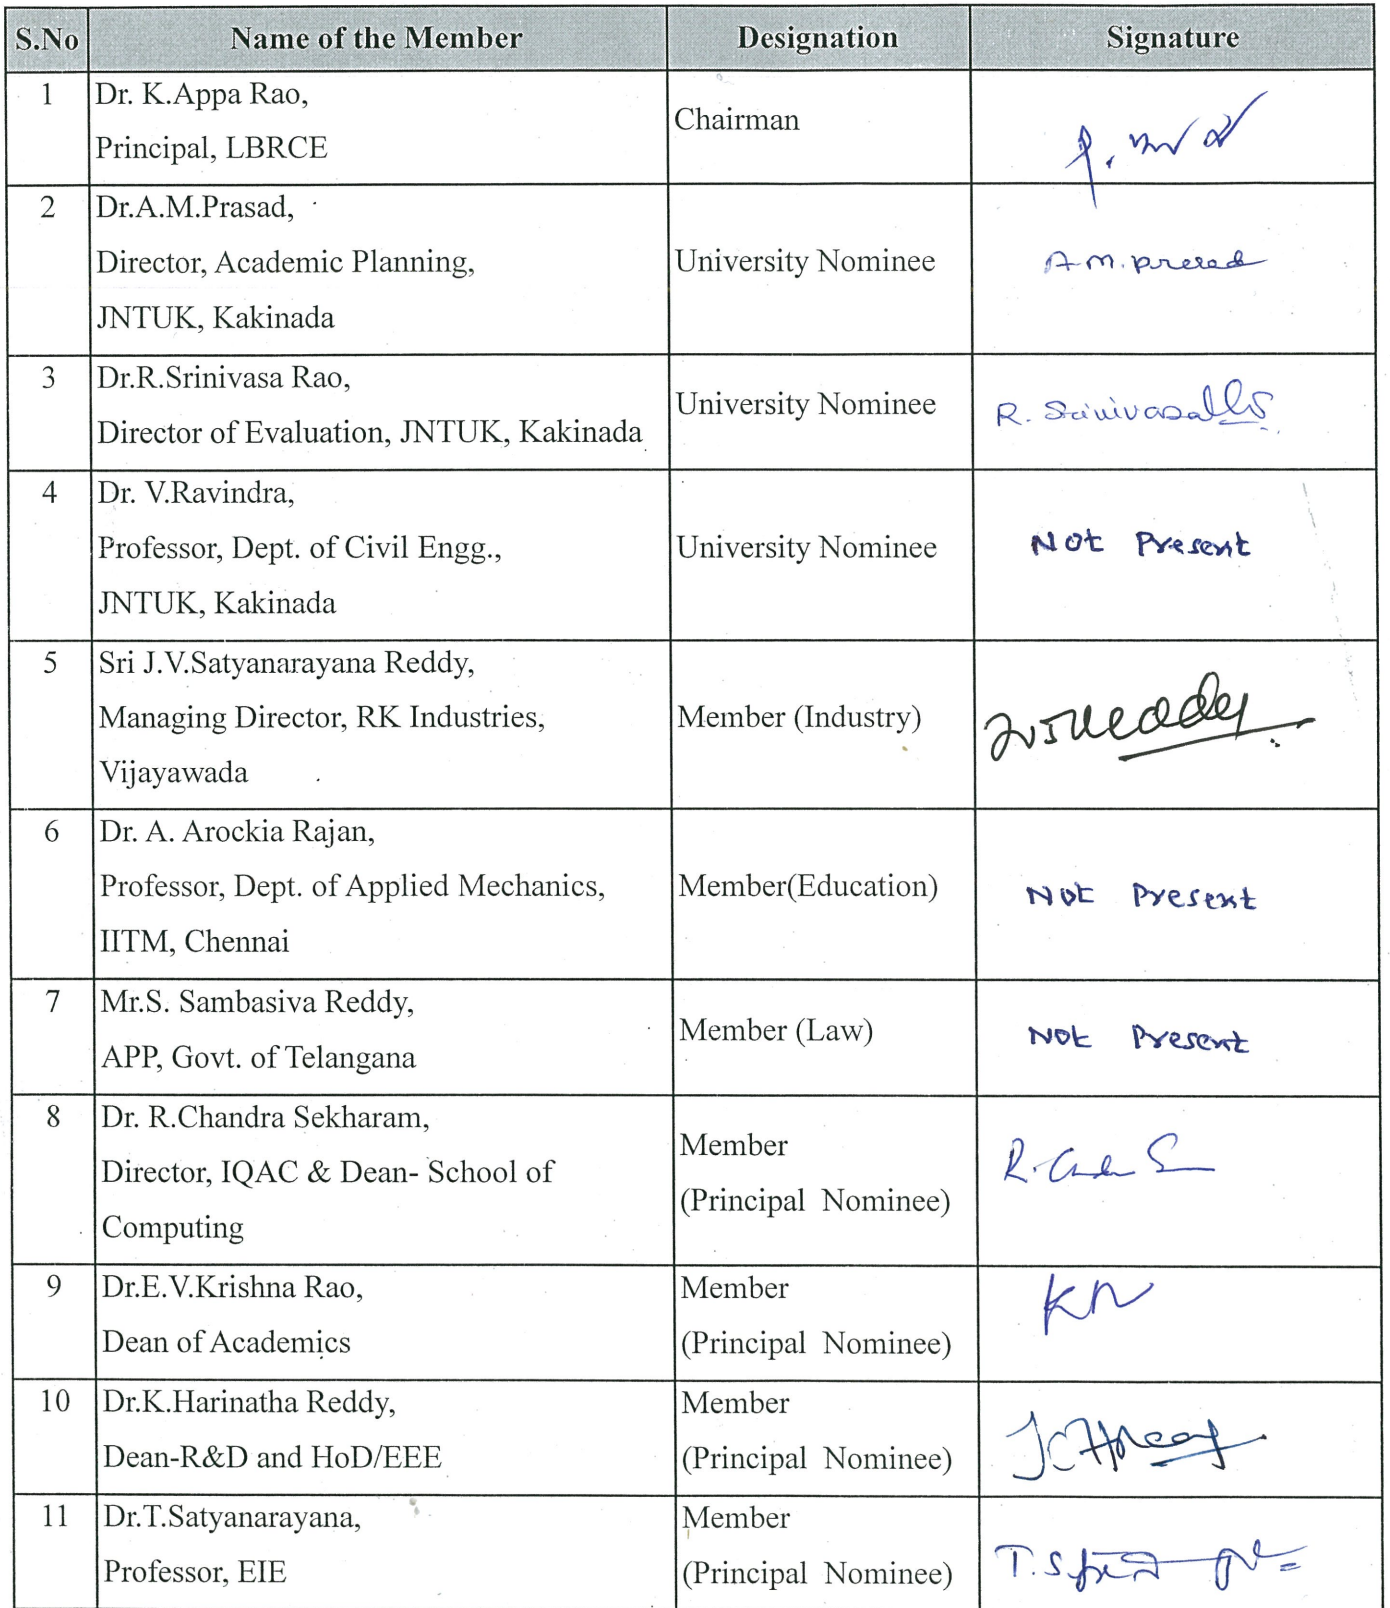 S.No Name of the Member Designation Signature
1 Dr. K.Appa Rao,
Principal, LBRCE
Chairman
2 Dr.A.M.Prasad,
Director, Academic Planning,
JNTUK, Kakinada
University Nominee
A.M. Prasad
3 Dr.R.Srinivasa Rao,
Director of Evaluation, JNTUK, Kakinada
University Nominee
R. SrinivasaRao
4 Dr. V.Ravindra,
Professor, Dept. of Civil Engg.,
JNTUK, Kakinada
University Nominee
Not Present
5 Sri J.V.Satyanarayana Reddy,
Managing Director, RK Industries,
Vijayawada
Member (Industry)
6 Dr. A. Arockia Rajan,
Professor, Dept. of Applied Mechanics,
IITM, Chennai
Member(Education)
Not Present
7 Mr.S. Sambasiva Reddy,
APP, Govt. of Telangana
Member (Law)
Not Present
8 Dr. R.Chandra Sekharam,
Director, IQAC & Dean- School of
Computing
Member
(Principal Nominee)
9 Dr.E.V.Krishna Rao,
Dean of Academics
Member
(Principal Nominee)
10 Dr.K.Harinatha Reddy,
Dean-R&D and HoD/EEE
Member
(Principal Nominee)
11 Dr.T.Satyanarayana,
Professor, EIE
Member
(Principal Nominee)